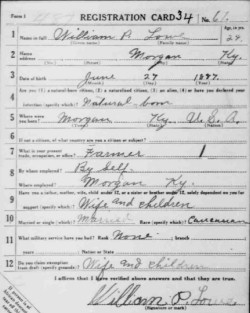 Form 1
REGISTRATION CARD 34 No. 61
1 Name in full William P. Lowe Age, in yrs. 29
(Given name) (Family name)
2 Home address Morgan Ky.
3 Date of birth June 27 1887
(Month) (Day) (Year)
4 Are you (1) a natural-born citizen, (2) a naturalized citizen, (3) an alien, (4) or have you declared your
intention (specify which)? Natural born
5 Where were you born? Morgan Ky. U.S.A.
6 If not a citizen, of what country are you a citizen or subject?
7 What is your present trade, occupation, or office? Farmer 1
8 By whom employed? By Self.
Where employed? Morgan Ky.
9 Have you a father, mother, wife, child under 12, or a sister or brother under 12, solely dependent on you for
support (specify which)? Wife and children
10 Married or single (which)? Married Race (specify which)? Caucasian
11 What military service have you had? Rank None. branch
years Nation or State
12 Do you claim exemption from draft (specify grounds)? Wife and children
I affirm that I have verified above answers and that they are true.
William P. Lowe
(Signature or mark)